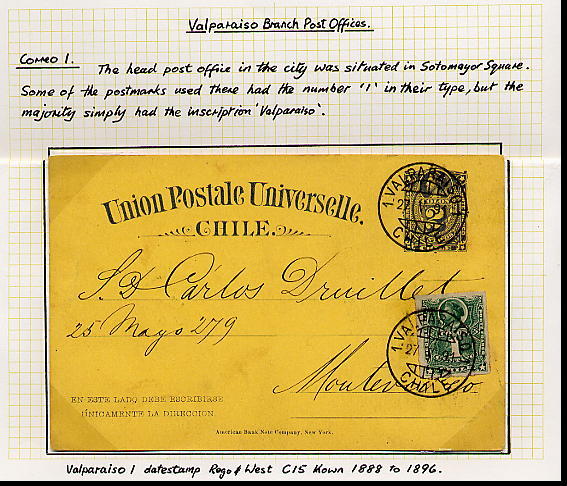 Valparaiso Branch Post Offices.
Correo 1. The head post office in the city was situated in Sotomayor Square.
Some of the postmarks used there had the number '1' in their type, but the
majority simply had the inscription 'Valparaiso'.
Union Postale Universelle.
CHILE.
1. VALPARAISO
27
91
CHILE
2
S. D. Cárlos Druillet
25 Mayo 279
1. VALPARAISO
27
CHILE
1
Montevideo
EN ESTE LADO DEBE ESCRIBIRSE
ÚNICAMENTE LA DIRECCION.
American Bank Note Company, New York.
Valparaiso 1 datestamp Rogo & West C15 Kown 1888 to 1896.